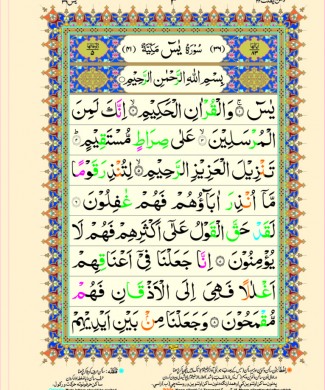 سُوْرَةُ يٰسٓ مَكِّيَّةٌ
بِسْمِ اللّٰهِ الرَّحْمٰنِ الرَّحِيْمِ
يٰسٓ ۚ وَالْقُرْاٰنِ الْحَكِيْمِ ۙ اِنَّكَ لَمِنَ
الْمُرْسَلِيْنَ ۙ عَلٰى صِرَاطٍ مُّسْتَقِيْمٍ ؕ
تَنْزِيْلَ الْعَزِيْزِ الرَّحِيْمِ ۙ لِتُنْذِرَ قَوْمًا
مَّاۤ اُنْذِرَ اٰبَآؤُهُمْ فَهُمْ غٰفِلُوْنَ
لَقَدْ حَقَّ الْقَوْلُ عَلٰۤى اَكْثَرِهِمْ فَهُمْ لَا
يُؤْمِنُوْنَ اِنَّا جَعَلْنَا فِيْۤ اَعْنَاقِهِمْ
اَغْلٰلًا فَهِيَ اِلَى الْاَذْقَانِ فَهُمْ
مُّقْمَحُوْنَ وَجَعَلْنَا مِنْۢ بَيْنِ اَيْدِيْهِمْ